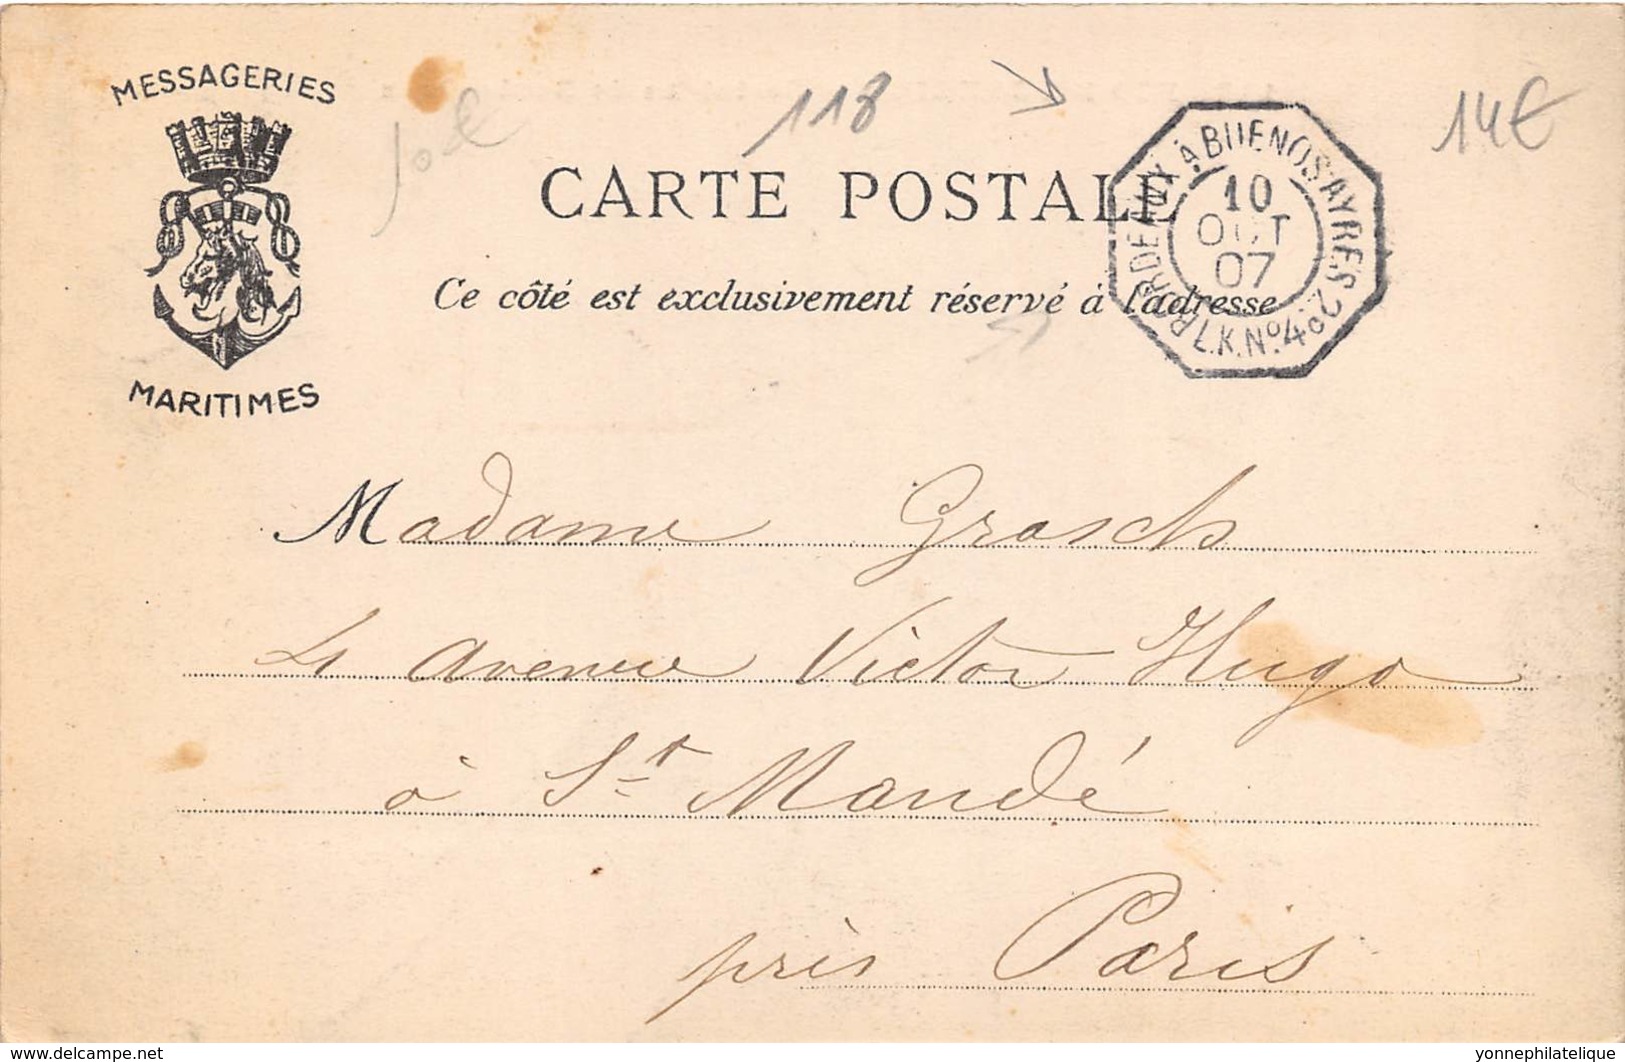 MESSAGERIES
MARITIMES
118
14€
CARTE POSTALE
Ce côté est exclusivement réservé à l'adresse
BORDEAUX À BUENOS-AYRES 2º
10
OCT
07
L.K. Nº.4
Madame Grosch
4 avenue Victor Hugo
à St Mandé
près Paris
www.delcampe.net
yonnephilatelique